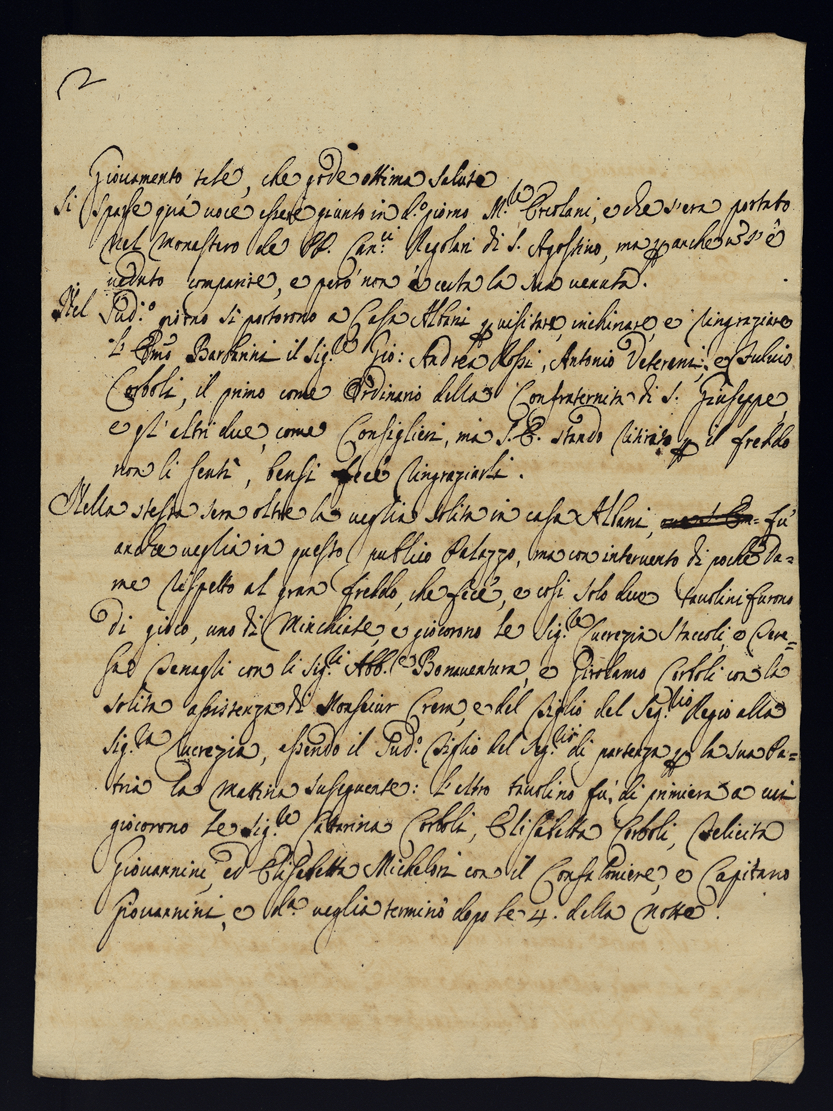 2
Giovamento tale, che gode ottima salute
Si sparse quà voce essere giunto in d.o giorno M.r Ercolani, e che s'era portato
nel Monastero de PP. Can.ci Regolari di S. Agostino, ma p anche n s'è
veduto comparire, e però non è certa la sua venuta.
Nel Sud.o giorno si portorono a Casa Albani p visitare, inchinare, e ringraziare
l'Emo Barberini il Sig.re Gio: Andrea Rossi, Antonio Veterani, e Fulvio
Corboli, il primo come Ordinario della Confraternita di S. Giuseppe,
e gl'altri due, come Consiglieri, ma S. E. stando ritirato p il freddo
non li sentì, bensì fece ringraziarli.
Nella stessa sera oltre la veglia solita in casa Albani, fù
anche veglia in questo publico Palazzo, ma con intervento di poche Da=
me rispetto al gran freddo, che fece, e così solo due tavolini furono
di gioco, uno di Minchiate, e giocorono le Sig.re Lucrezia Staccoli, e Tere=
sa con li Sig.ri Abb.e Bonaventura, e Girolamo Corboli con la
solita assistenza di Monsieur Crem, e del Figlio del Seg.rio Regio alla
Sig.ra Lucrezia, essendo il Sud.o Figlio del Seg.rio di partenza p la sua Pa=
tria la mattina susseguente: l'altro tavolino fù di primiera a cui
giocorono le Sig.re Cattarina Corboli, Elisabetta Corboli, Felicita
Giovannini, ed Elisabetta Michelori con il Confaloniere, e Capitano
Giovannini, e d.a veglia terminò dopo le 4. della notte.